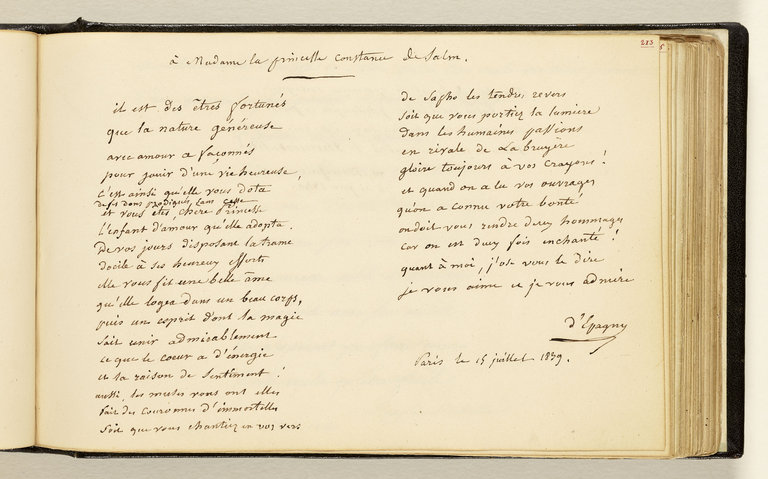 213
à Madame la princesse constance de Salm.
il est des êtres fortunés
que la nature généreuse
avec amour a façonnés
pour jouir d'une vie heureuse,
c'est ainsi qu'elle vous dota
de ses dons prodigues, sans cesse
et vous êtes, chère Princesse
l'enfant d'amour qu'elle adopta.
De vos jours disposant la trame
docile à ses heureux efforts
elle vous fit une belle âme
qu'elle logea dans un beau corps,
puis un esprit dont la magie
sait unir admirablement
ce que le coeur a d'énergie
et la raison de sentiment !
aussi, les muses vous ont elles
fait des couronnes d'immortelles
soit que vous chantiez en vos vers
de Sapho les tendres revers
soit que vous portiez la lumière
dans les humaines passions
en rivale de La bruyère
gloire toujours à vos crayons !
et quand on a lu vos ouvrages
qu'on a connu votre bonté
on doit vous rendre deux hommages
car on est deux fois enchanté !
quant à moi, j'ose vous le dire
je vous aime et je vous admire
d'Epagny
Paris le 15 juillet 1839.